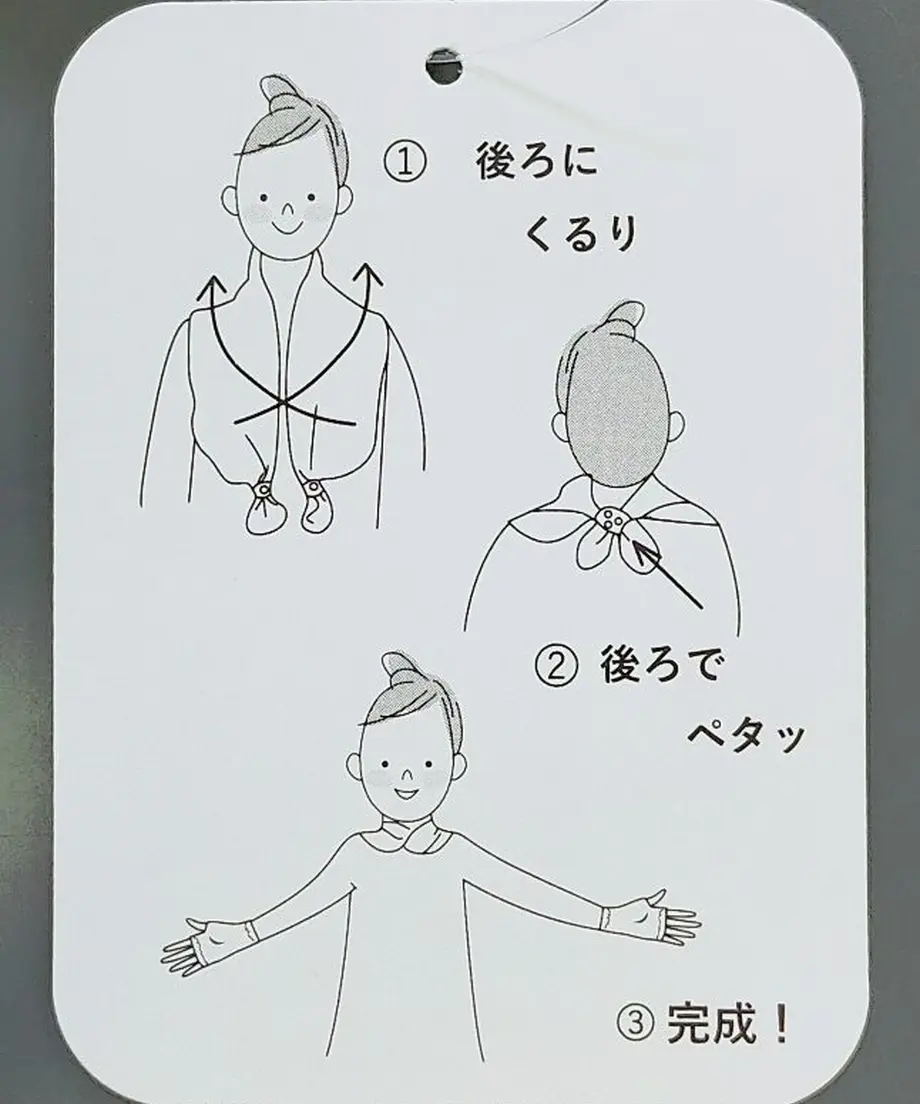 ① 後ろに
くるり
② 後ろで
ペタッ
③ 完成！